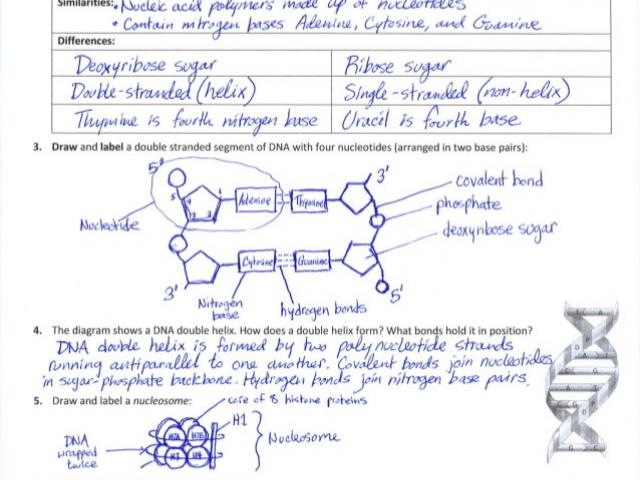 Similarities: • Nucleic acid polymers made up of nucleotides
• Contain nitrogen bases Adenine, Cytosine, and Guanine
Differences:
Deoxyribose sugar Ribose sugar
Double-stranded (helix) Single-stranded (non-helix)
Thymine is fourth nitrogen base Uracil is fourth base
3. Draw and label a double stranded segment of DNA with four nucleotides (arranged in two base pairs):
5' 3'
covalent bond
Adenine Thymine
phosphate
Nucleotide
deoxyribose sugar
Cytosine Guanine
3' 5'
Nitrogen base
hydrogen bonds
4. The diagram shows a DNA double helix. How does a double helix form? What bonds hold it in position?
DNA double helix is formed by two polynucleotide strands
running antiparallel to one another. Covalent bonds join nucleotides
in sugar-phosphate backbone. Hydrogen bonds join nitrogen base pairs.
5. Draw and label a nucleosome:
core of 8 histone proteins
H1
DNA
wrapped
twice
Nucleosome